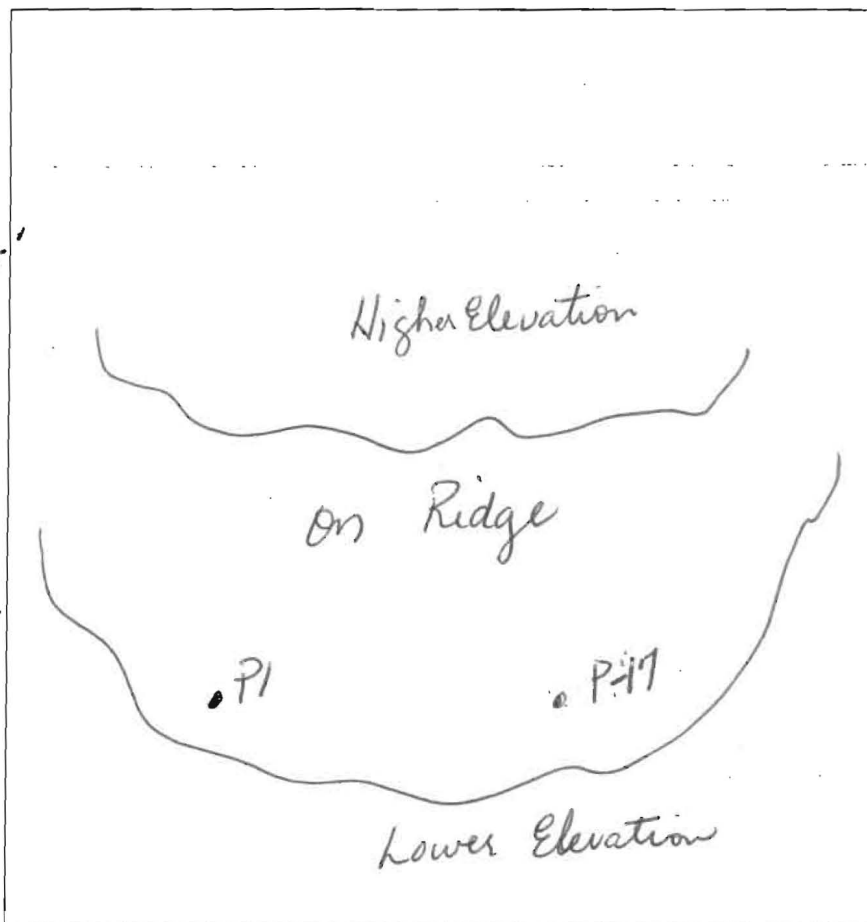 Higher Elevation
On Ridge
P1
P-17
Lower Elevation